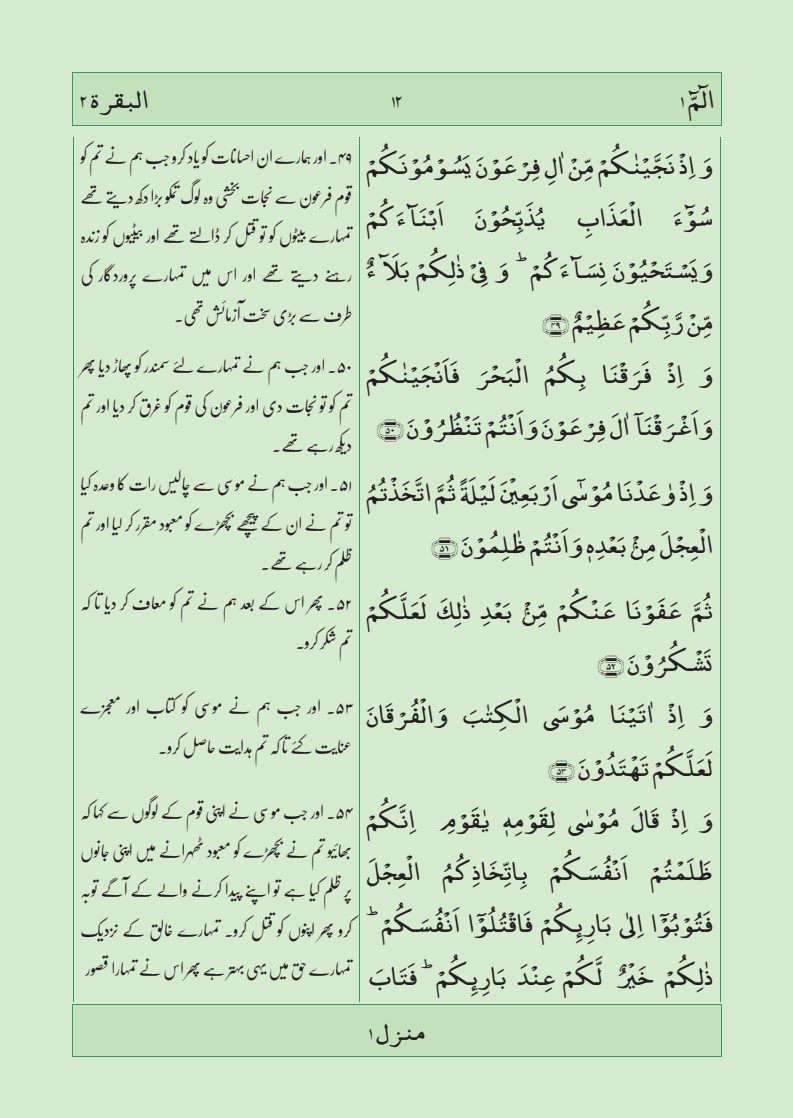 الٓمّٓ ۱
۱۲
البقرة ۲
وَ اِذْ نَجَّيْنٰكُمْ مِّنْ اٰلِ فِرْعَوْنَ يَسُوْمُوْنَكُمْ
سُوْٓءَ الْعَذَابِ يُذَبِّحُوْنَ اَبْنَآءَكُمْ
وَيَسْتَحْيُوْنَ نِسَآءَكُمْ ؕ وَ فِيْ ذٰلِكُمْ بَلَآءٌ
مِّنْ رَّبِّكُمْ عَظِيْمٌ ۴۹
وَ اِذْ فَرَقْنَا بِكُمُ الْبَحْرَ فَاَنْجَيْنٰكُمْ
وَاَغْرَقْنَآ اٰلَ فِرْعَوْنَ وَاَنْتُمْ تَنْظُرُوْنَ ۵۰
وَ اِذْ وٰعَدْنَا مُوْسٰٓى اَرْبَعِيْنَ لَيْلَةً ثُمَّ اتَّخَذْتُمُ
الْعِجْلَ مِنْۢ بَعْدِهٖ وَاَنْتُمْ ظٰلِمُوْنَ ۵۱
ثُمَّ عَفَوْنَا عَنْكُمْ مِّنْۢ بَعْدِ ذٰلِكَ لَعَلَّكُمْ
تَشْكُرُوْنَ ۵۲
وَ اِذْ اٰتَيْنَا مُوْسَى الْكِتٰبَ وَالْفُرْقَانَ
لَعَلَّكُمْ تَهْتَدُوْنَ ۵۳
وَ اِذْ قَالَ مُوْسٰى لِقَوْمِهٖ يٰقَوْمِ اِنَّكُمْ
ظَلَمْتُمْ اَنْفُسَكُمْ بِاتِّخَاذِكُمُ الْعِجْلَ
فَتُوْبُوْٓا اِلٰى بَارِئِكُمْ فَاقْتُلُوْٓا اَنْفُسَكُمْ ؕ
ذٰلِكُمْ خَيْرٌ لَّكُمْ عِنْدَ بَارِئِكُمْ ؕ فَتَابَ
۴۹۔ اور ہمارے ان احسانات کو یاد کرو جب ہم نے تم کو
قوم فرعون سے نجات بخشی وہ لوگ تمکو بڑا دکھ دیتے تھے
تمہارے بیٹوں کو تو قتل کر ڈالتے تھے اور بیٹیوں کو زندہ
رہنے دیتے تھے اور اس میں تمہارے پروردگار کی
طرف سے بڑی سخت آزمائش تھی۔
۵۰۔ اور جب ہم نے تمہارے لئے سمندر کو پھاڑ دیا پھر
تم کو تو نجات دی اور فرعون کی قوم کو غرق کر دیا اور تم
دیکھ رہے تھے۔
۵۱۔ اور جب ہم نے موسی سے چالیس رات کا وعدہ کیا
تو تم نے ان کے پیچھے بچھڑے کو معبود مقرر کر لیا اور تم
ظلم کر رہے تھے۔
۵۲۔ پھر اس کے بعد ہم نے تم کو معاف کر دیا تا کہ
تم شکر کرو۔
۵۳۔ اور جب ہم نے موسی کو کتاب اور معجزے
عنایت کئے تاکہ تم ہدایت حاصل کرو۔
۵۴۔ اور جب موسی نے اپنی قوم کے لوگوں سے کہا کہ
بھائیو تم نے بچھڑے کو معبود ٹھہرانے میں اپنی جانوں
پر ظلم کیا ہے تو اپنے پیدا کرنے والے کے آگے توبہ
کرو پھر اپنوں کو قتل کرو۔ تمہارے خالق کے نزدیک
تمہارے حق میں یہی بہتر ہے پھر اس نے تمہارا قصور
منزل ۱